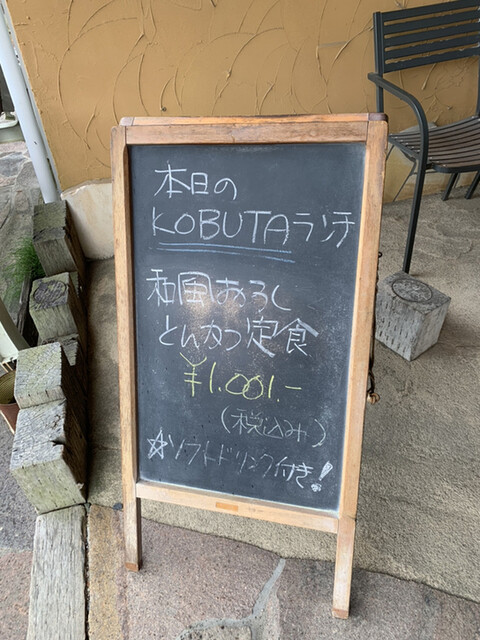 本日の
KOBUTAランチ
和風おろし
とんかつ定食
¥1.001.-
(税込み)
☆ソフトドリンク付き!